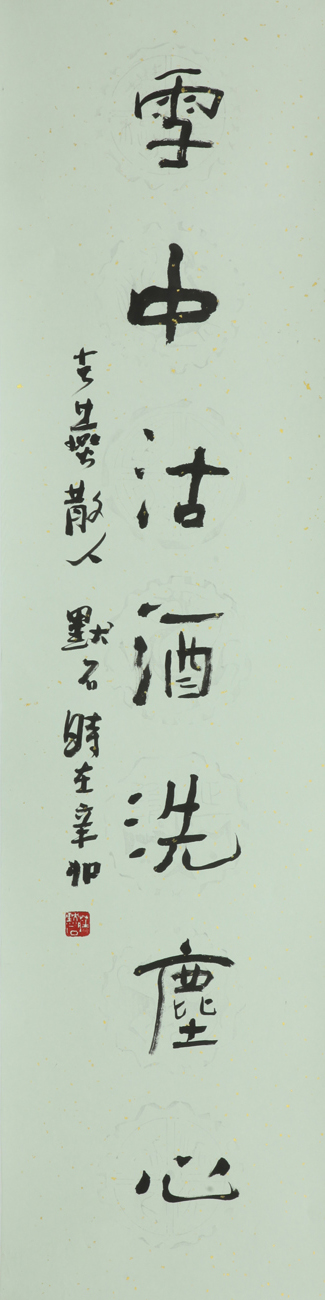 雪中沽酒洗塵心
散人 默石 時在辛丑